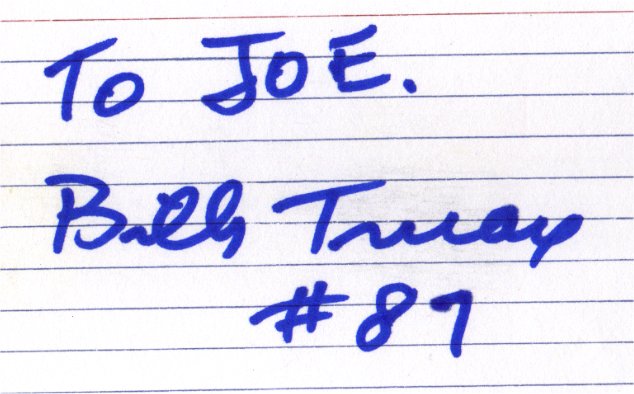 To JOE.
Billy Truax
#87